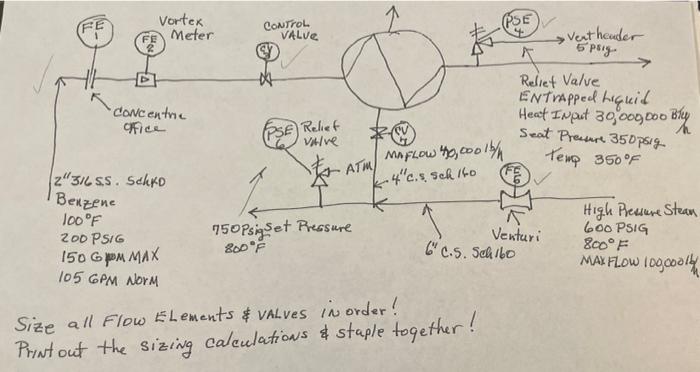 FE
1
Vortex
Meter
FE
2
CONTROL
VALVE
CV
3
PSE
4
Vent header
5 psig
Relief Valve
ENTrapped Liquid
Heat INput 30,000,000 Btu/h
Seat Pressure 350 psig
Temp 350°F
concentric
2" 316 S.S. Sch40
Benzene
100°F
200 PSIG
150 GPM MAX
105 GPM Norm
PSE
6
Relief
valve
ATM
750 Psig Set Pressure
800°F
CV
7
MAFLOW 40,000 lb/h
4" C.S. Sch 160
FE
Venturi
6" C.S. Sch 160
High Pressure Steam
600 PSIG
800°F
MAX FLOW 100,000 lb/h
Size all Flow Elements & VALVES in order!
Print out the sizing calculations & staple together!